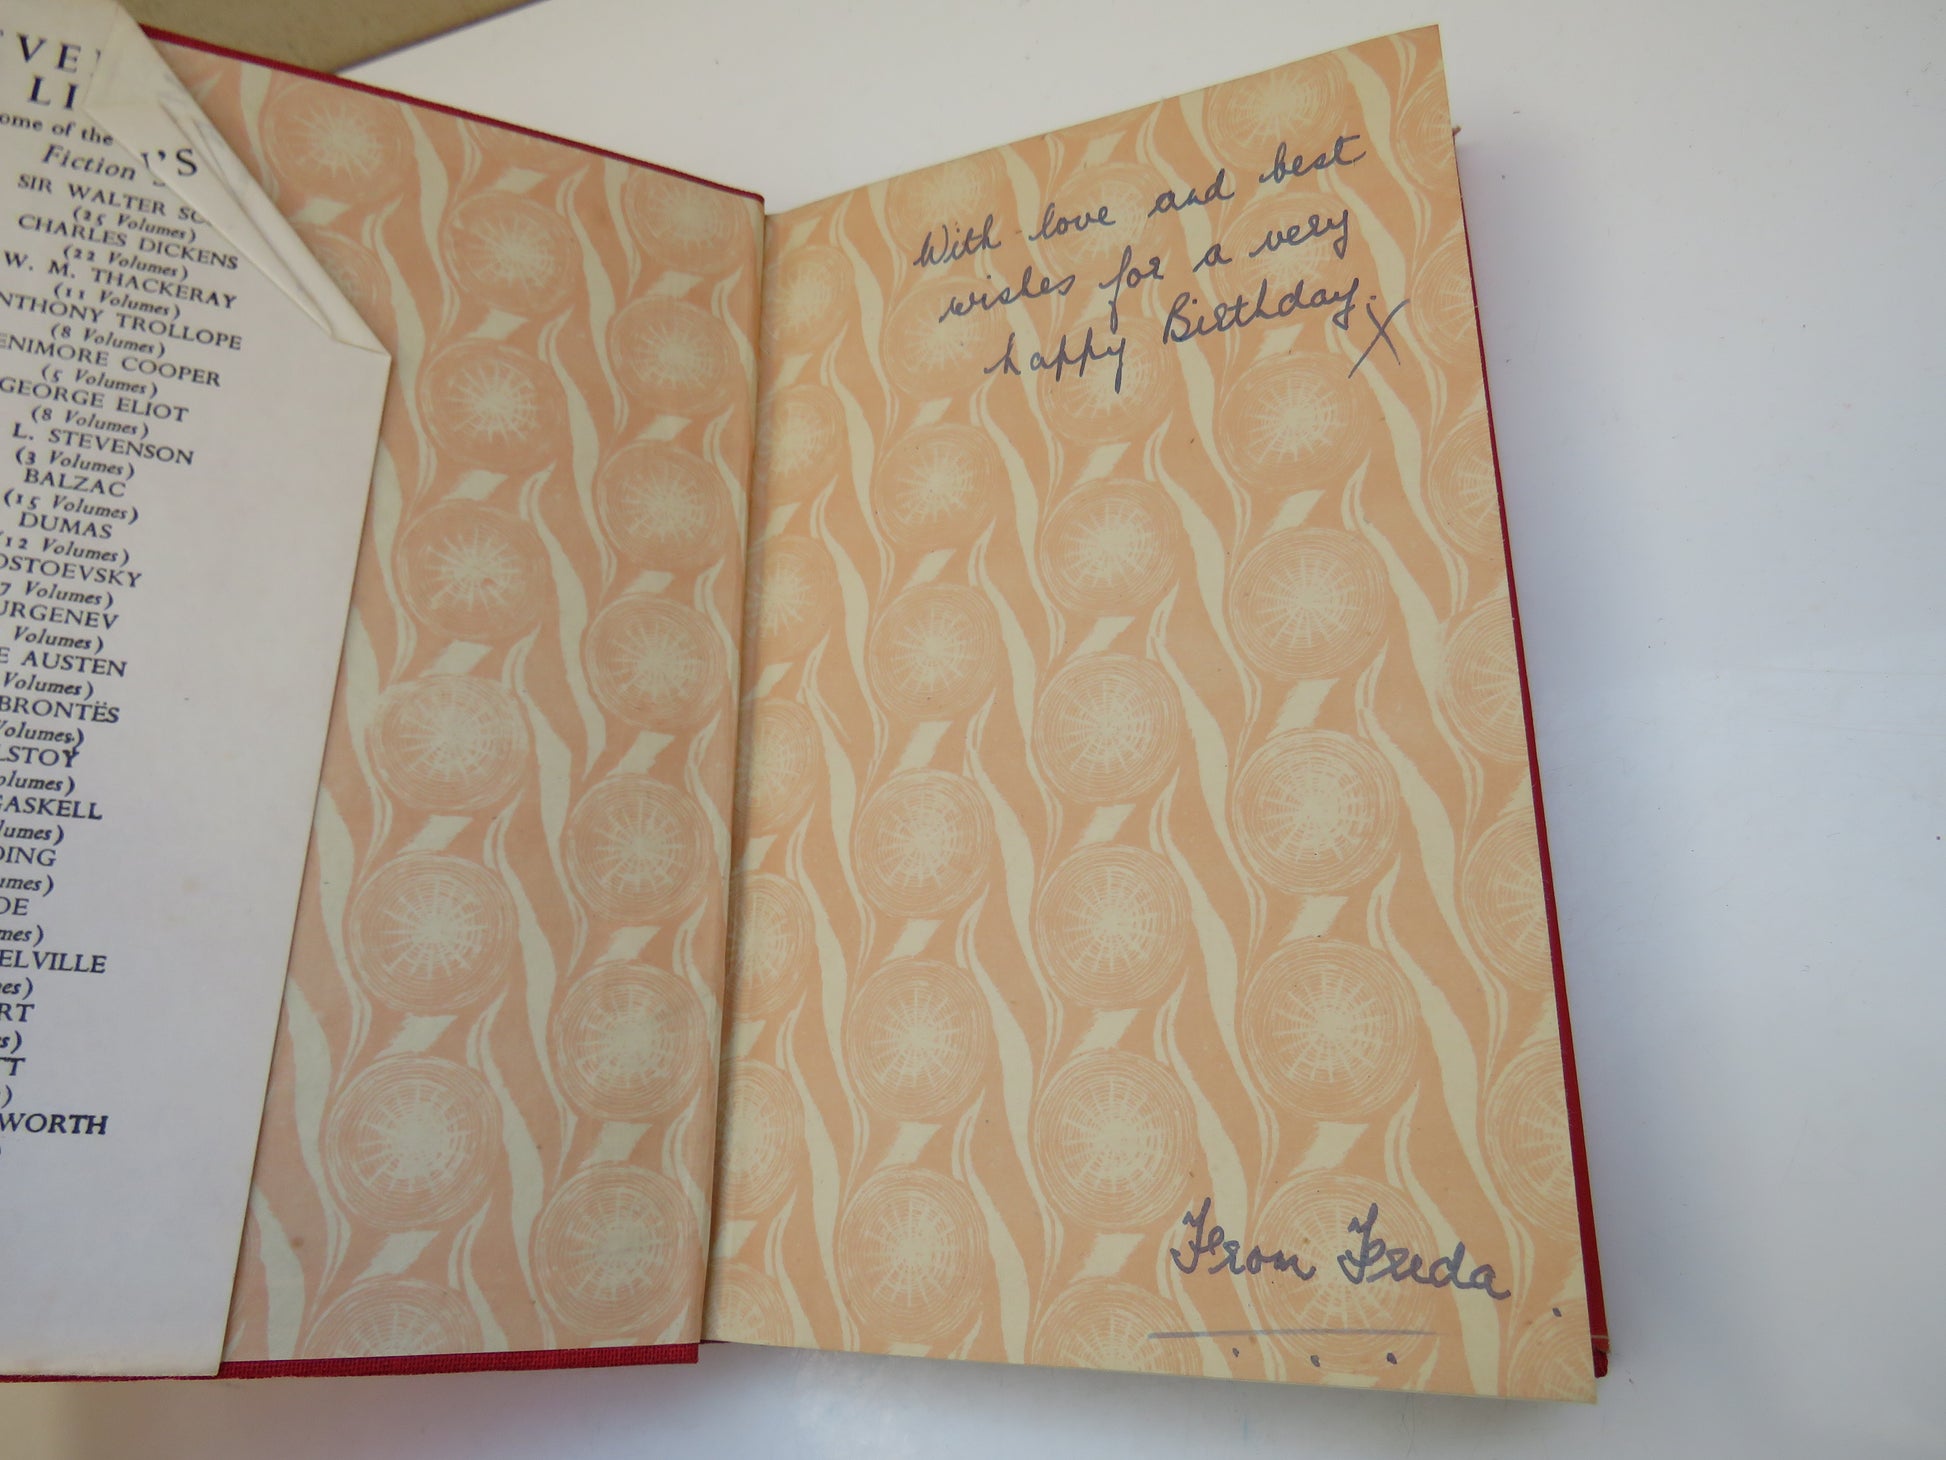 LI
of the
Fiction
SIR WALTER
(25 Volumes)
CHARLES DICKENS
(22 Volumes)
W. M. THACKERAY
(11 Volumes)
NTHONY TROLLOPE
(8 Volumes)
ENIMORE COOPER
(5 Volumes)
GEORGE ELIOT
(8 Volumes)
L. STEVENSON
(3 Volumes)
BALZAC
(15 Volumes)
DUMAS
(12 Volumes)
OSTOEVSKY
7 Volumes)
URGENEV
Volumes)
E AUSTEN
Volumes)
BRONTËS
Volumes)
LSTOY
olumes)
GASKELL
lumes)
DING
umes)
OE
mes)
ELVILLE
es)
RT
s)
TT
)
WORTH
With love and best
wishes for a very
happy Birthday. X
From Freda